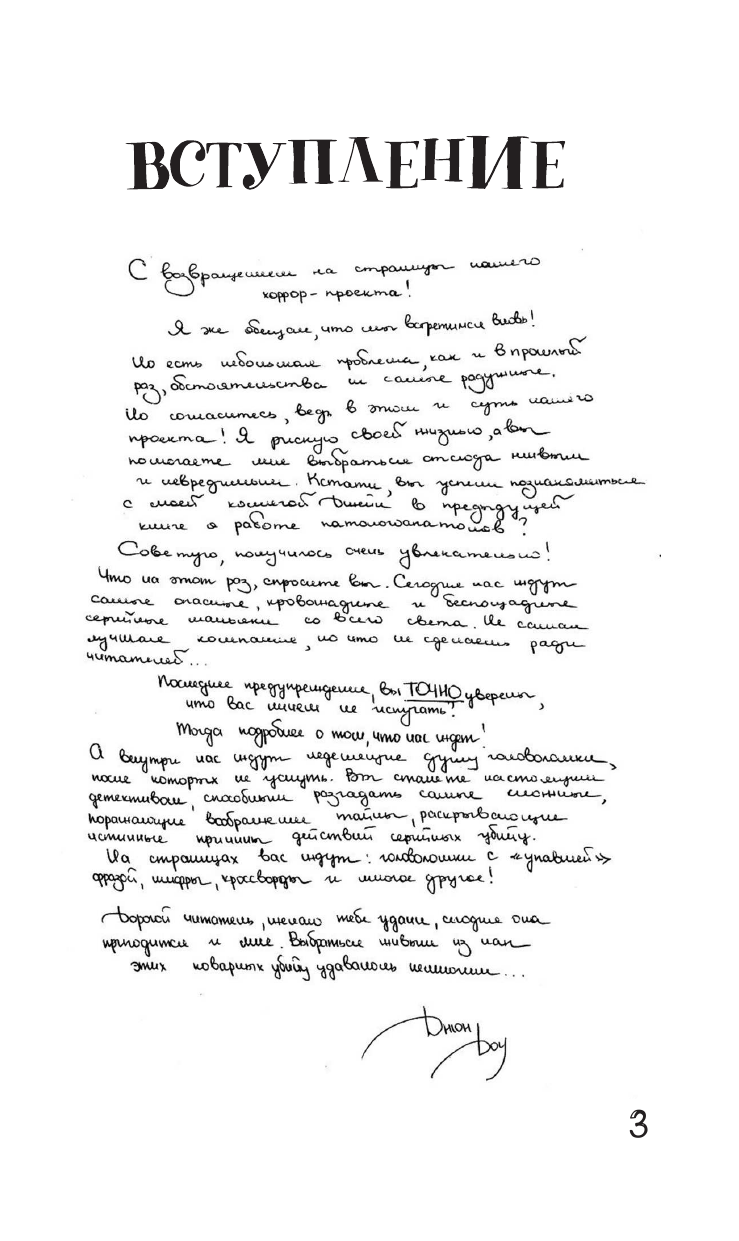 ВСТУПЛЕНИЕ
С возвращением на страницы нашего
хоррор-проекта!
Я же обещал, что мы встретимся вновь!
Но есть небольшая проблема, как и в прошлый
раз, обстоятельства не самые радужные.
Но согласитесь, ведь в этом и суть нашего
проекта! Я рискую своей жизнью, а вы
помогаете мне выбраться отсюда живым
и невредимым. Кстати, вы успели познакомиться
с моей коллегой Джейн в предыдущей
книге о работе патологоанатомов?
Советую, получилось очень увлекательно!
Что на этот раз, спросите вы. Сегодня нас ждут
самые опасные, кровожадные и беспощадные
серийные маньяки со всего света. Не самая
лучшая компания, но что не сделаешь ради
читателей...
Последнее предупреждение, вы ТОЧНО уверены,
что вас ничем не испугать?
Тогда подробнее о том, что нас ждет!
А внутри нас ждут леденящие душу головоломки,
после которых не уснуть. Вы станете настоящим
детективом, способным разгадать самые сложные,
поражающие воображение тайны, раскрывающие
истинные причины действий серийных убийц.
На страницах вас ждут: головоломки с «упавшей»
фразой, шифры, кроссворды и многое другое!
Дорогой читатель, желаю тебе удачи, сегодня она
пригодится и мне. Выбраться живым из лап
этих коварных убийц удавалось немногим...
Джон
Доу
3